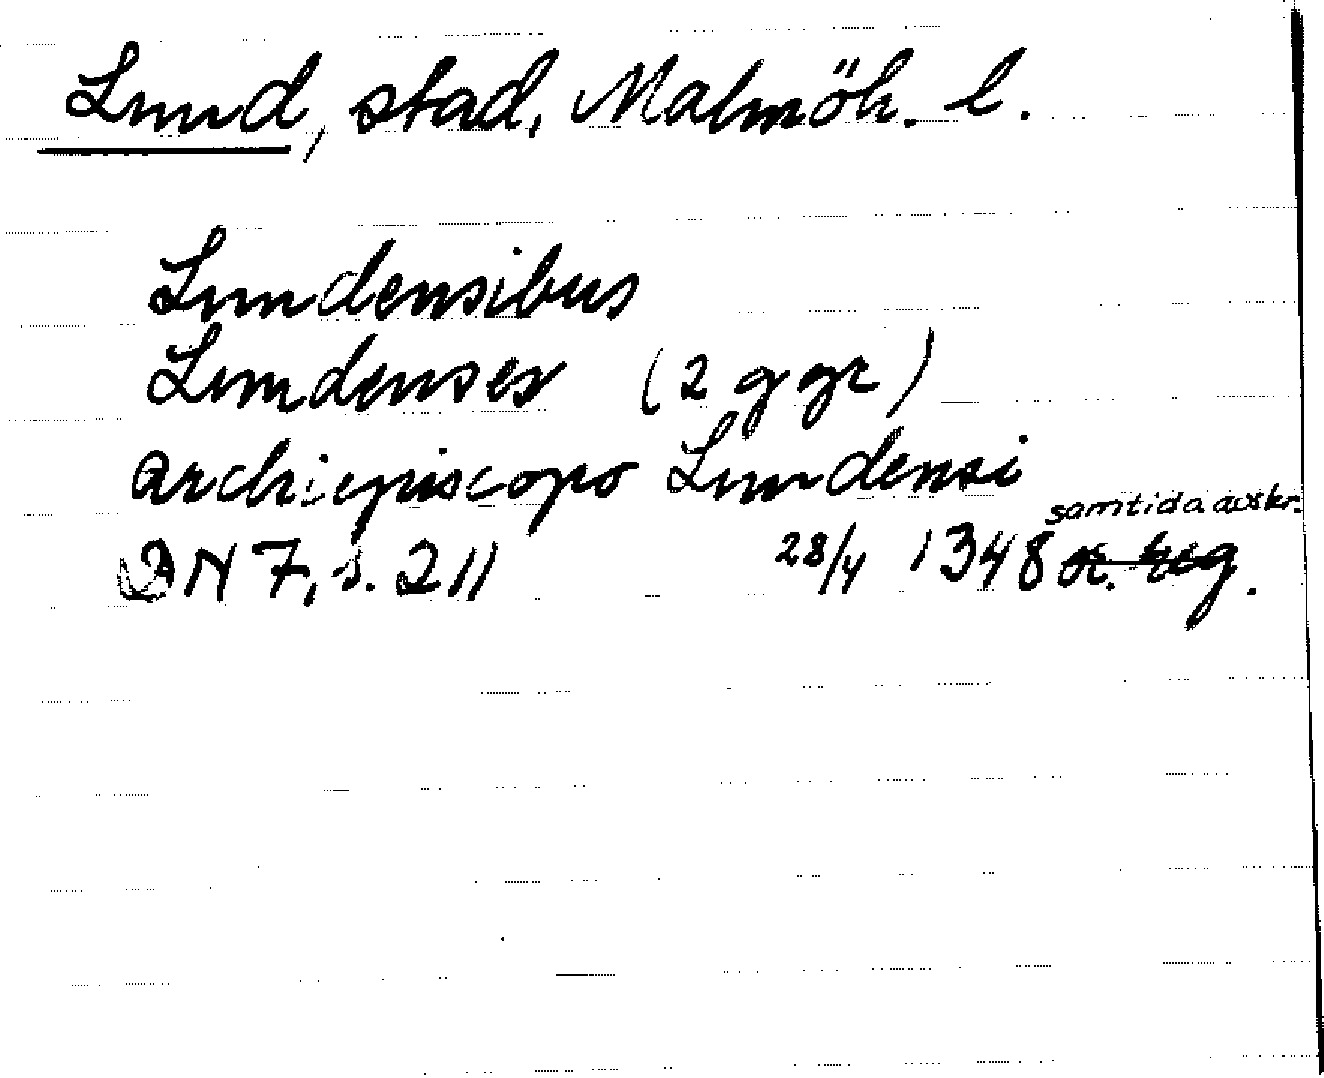 Lund, stad, Malmöh. l.
Lundensibus
Lundenses (2 ggr)
archiepiscopo Lundensi
samtida avskr.
DN 7, s. 211 28/4 1348 reg.